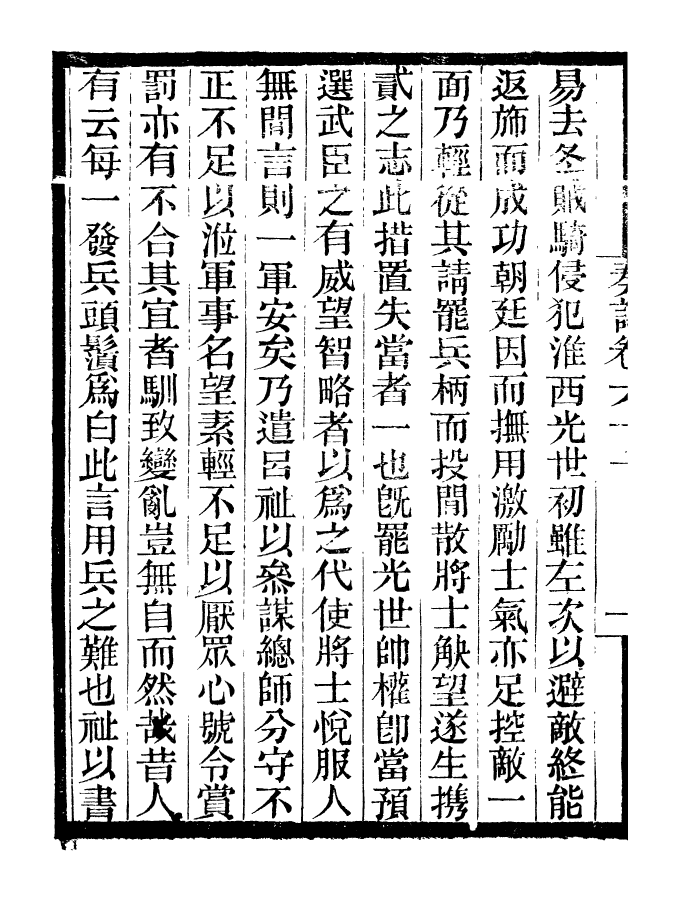 奏議卷六十一
易去冬賊騎侵犯淮西光世初雖左次以避敵終能
返斾而成功朝廷因而撫用激勵士氣亦足控敵一
面乃輕從其請罷兵柄而投閒散將士觖望遂生携
貳之志此措置失當者一也旣罷光世帥權卽當預
選武臣之有威望智略者以爲之代使將士悅服人
無間言則一軍安矣乃遣呂祉以叅謀總師分守不
正不足以涖軍事名望素輕不足以厭眾心號令賞
罰亦有不合其宜者馴致變亂豈無自而然哉昔人
有云每一發兵頭鬚爲白此言用兵之難也祉以書